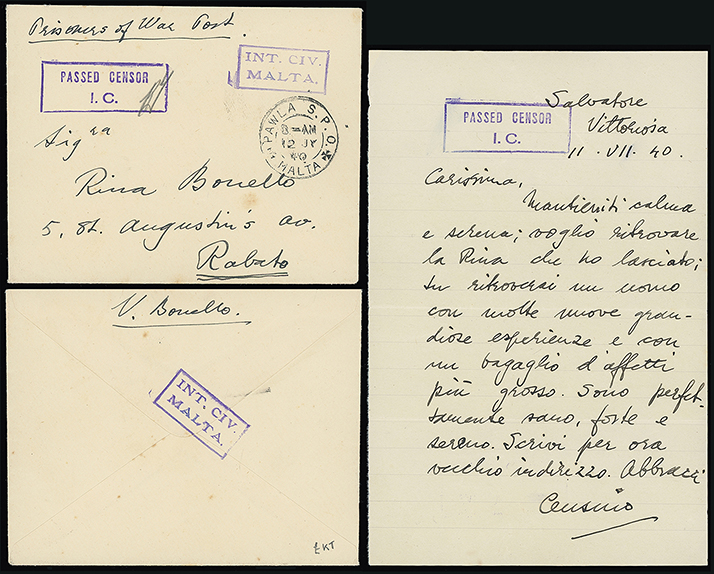 Prisoners of War Post.
INT. CIV.
MALTA.
PASSED CENSOR
I. C.
PAWLA S.P.O.
8-AM
12 JY
40
MALTA
Sig ra
Rina Bonello
5, St. Augustin's av.
Rabato
V. Bonello.
INT. CIV.
MALTA.
£KT
PASSED CENSOR
I. C.
Salvatore
Vittoriosa
11. VII. 40.
Carissima,
Mantieniti calma
e serena; voglio ritrovare
la Rina che ho lasciato;
tu ritroverai un uomo
con molte nuove gran-
diose esperienze e con
un bagaglio d'affetti
più grosso. Sono perfet-
tamente sano, forte e
sereno. Scrivi per ora
vecchio indirizzo. Abbracci
Censino